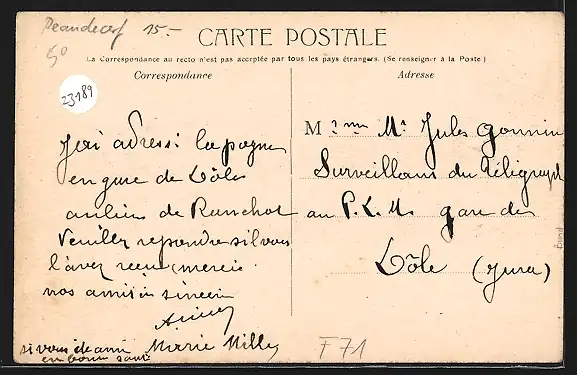 15.-
50
23189
CARTE POSTALE
La Correspondance au recto n'est pas acceptée par tous les pays étrangers. (Se renseigner à la Poste)
Correspondance
Adresse
J'ai adressi la
en gare de Dôle
au lieu de Ranchot
Veuillez repondre si vous
l'avez recu merci
nos amitiés sincere
Marie Milley
si vous ete ami
en bonne santé
M Mr Jules Gonnin
Surveillant du Télégraph
au P.L.M. gare de
Dôle (Jura)
F71